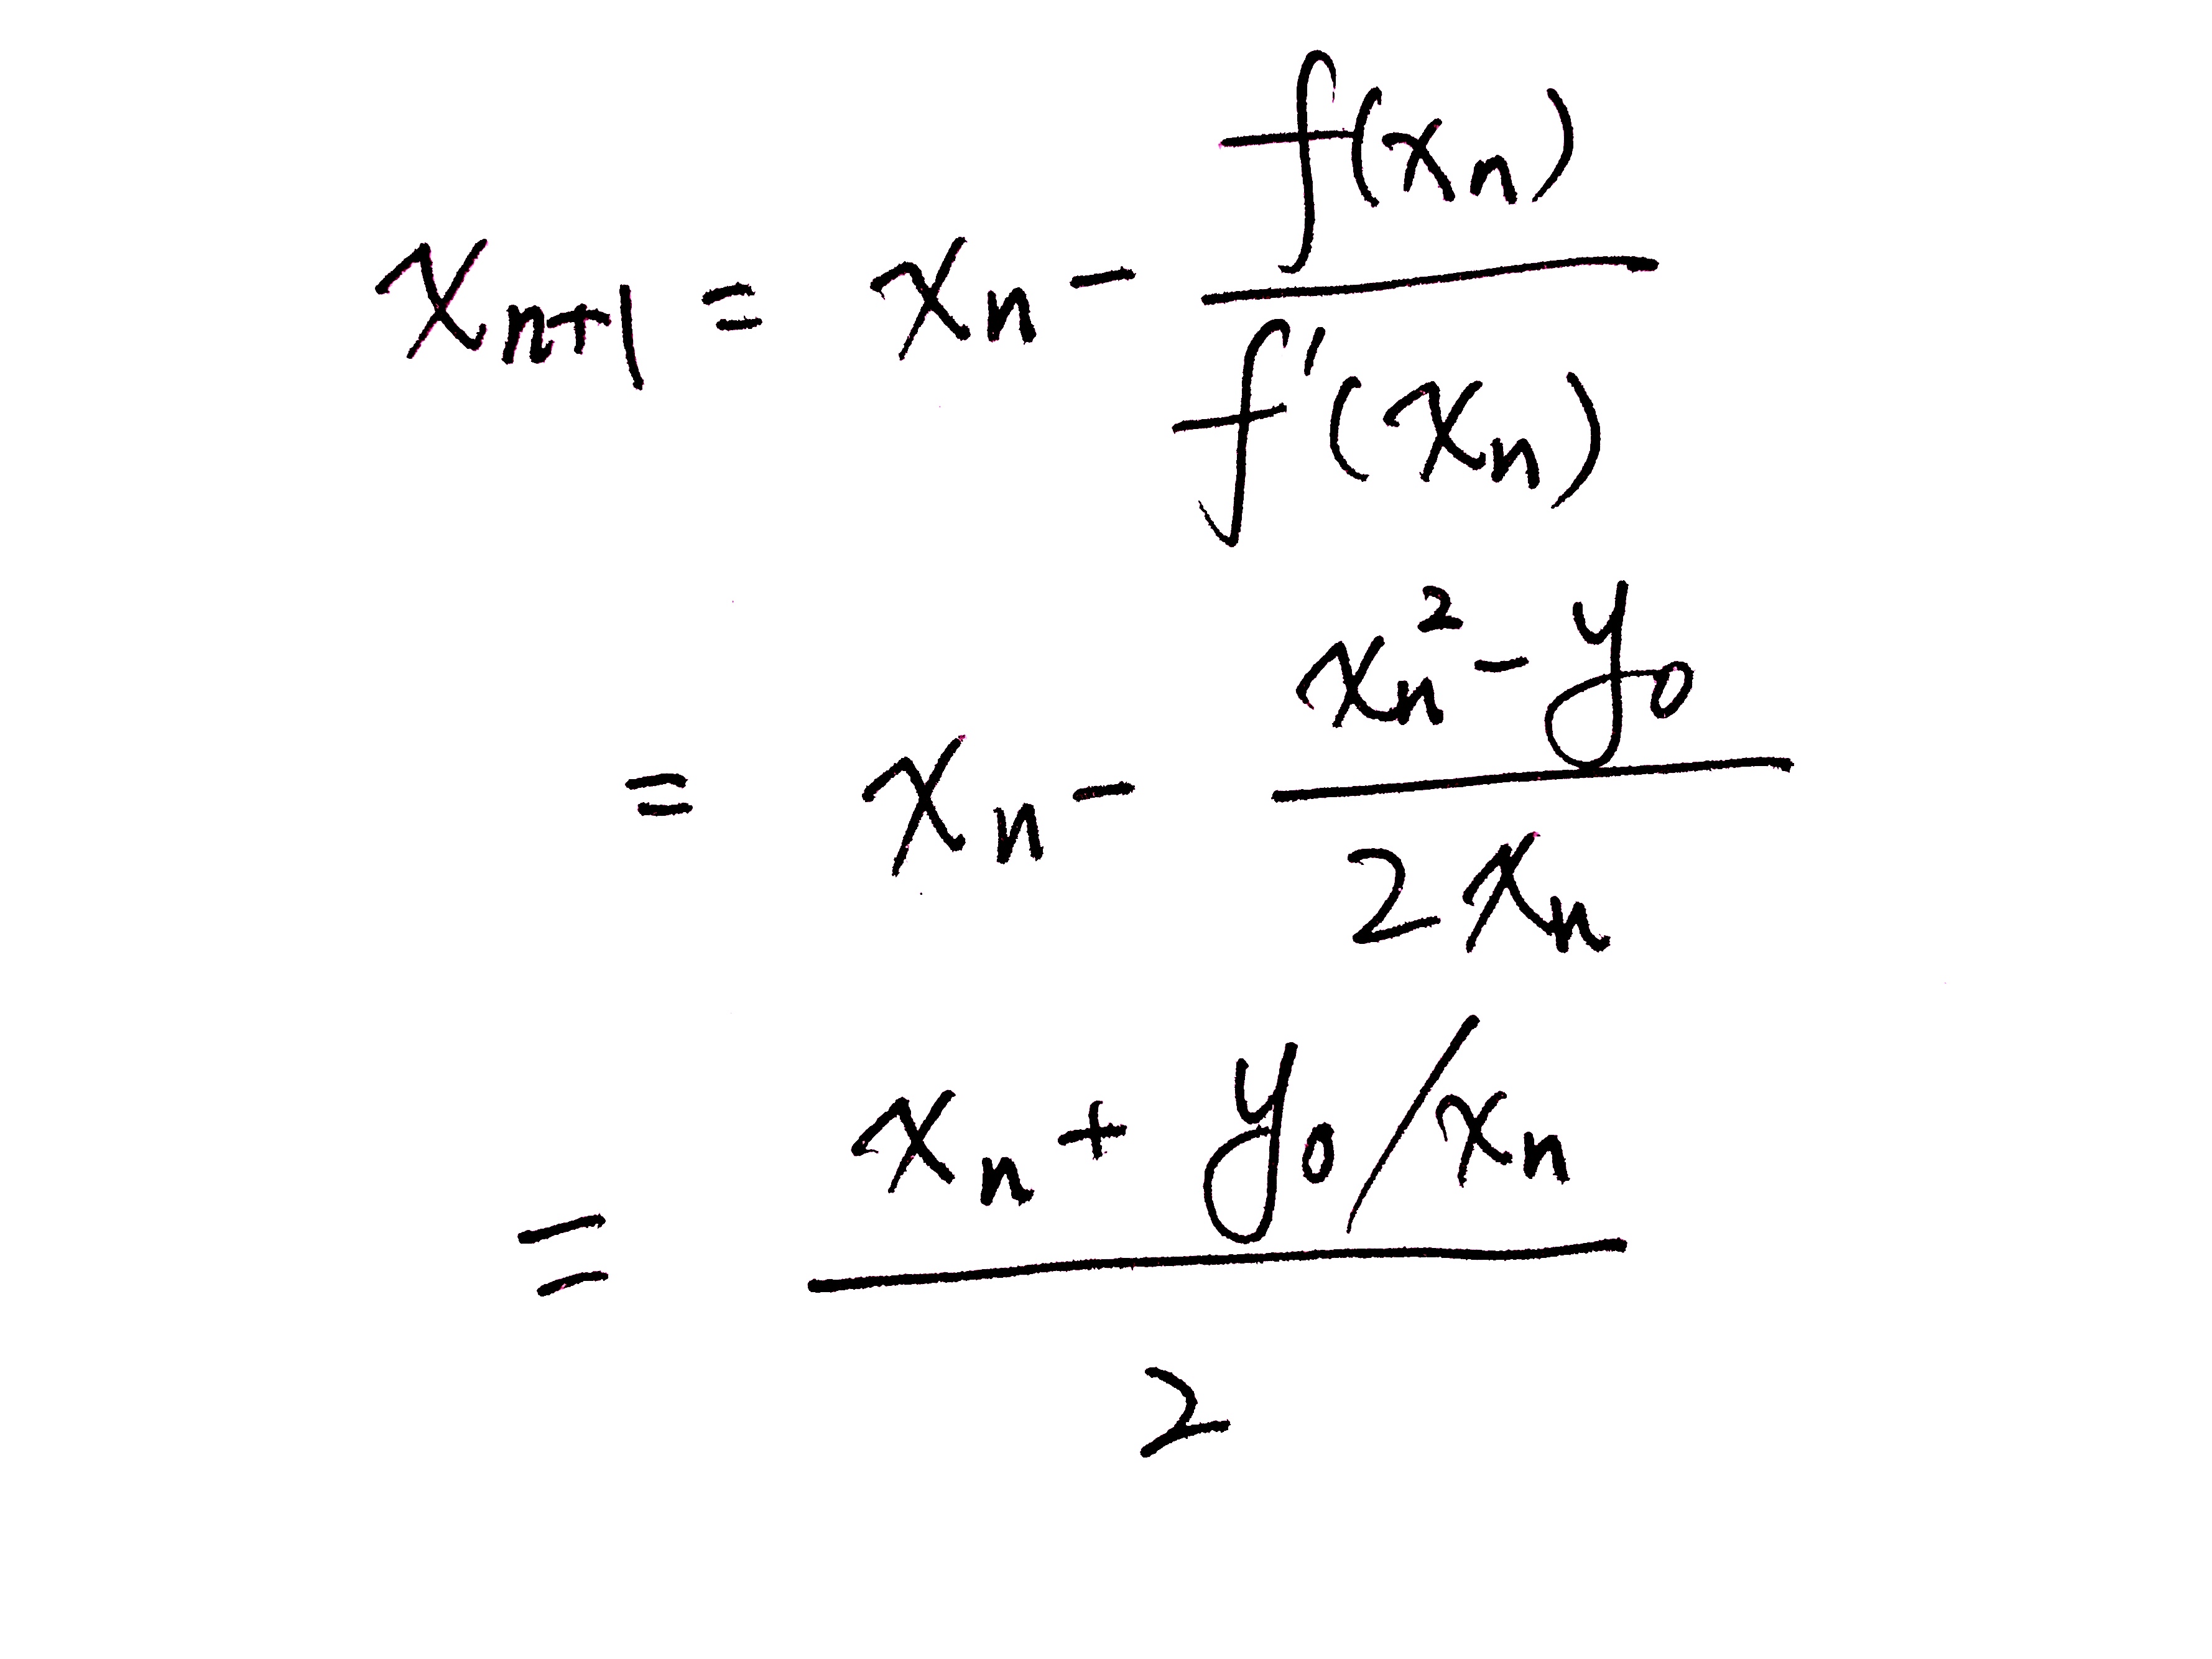 x_{n+1} = x_n - \frac{f(x_n)}{f'(x_n)}
= x_n - \frac{x_n^2 - y_0}{2x_n}
= \frac{x_n + y_0/x_n}{2}